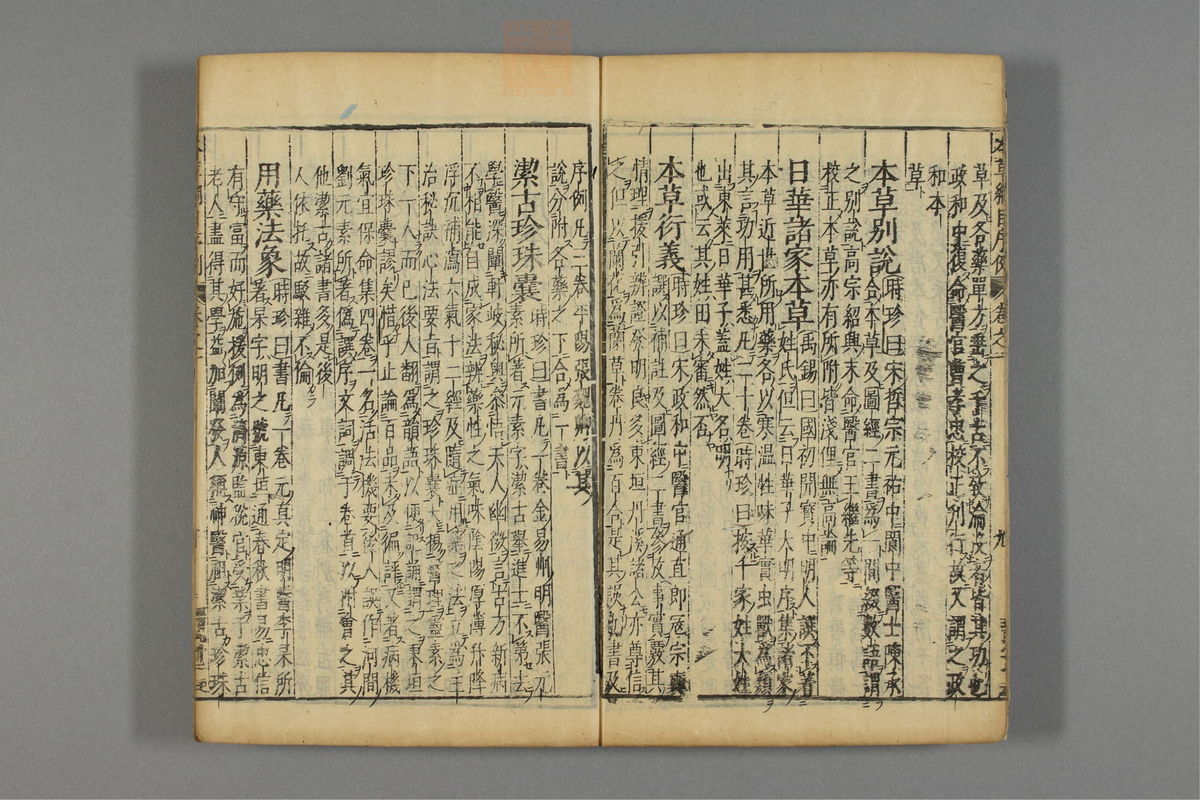 草及各藥單方壘之千古不致淪没者皆其功也
政和中復命醫官曹孝忠校正刋行故又謂之政
和本
草
本草别説時珍曰宋哲宗元祐中閬中醫士陳承
合本草及圖經二書爲一間綴數語謂
之别説高宗紹興末命醫官王繼先等
校正本草亦有所附皆淺俚無高論
日華諸家本草禹錫曰國初開寶中明人譔不著
姓氏但云日華子大明序集諸家
本草近世所用藥各以寒温性味華實虫獸爲類
其言功用甚悉凡二十卷時珍曰按千家姓大姓
出東萊日華子蓋姓大名明
也或云其姓田未審然否
本草衍義時珍曰宋政和中醫官通直郎寇宗奭
譔以補註及圖經二書參攷事實覈其
情理援引辨證發明良多東垣丹溪諸公亦尊信
之但以蘭花爲蘭草卷丹爲百合是其誤也書及
序例凡三卷平陽張魏卿以其
説分附各藥之下合爲一書
潔古珍珠囊時珍曰書凡一卷金易州明醫張元
素所著元素字潔古舉進士不第去
學醫深闡軒岐秘奥參悟天人幽微言古方新病
不相能自成家法辨藥性之氣味陰陽厚薄升降
浮沉補瀉六氣十二經及隨證用藥之法立爲主
治秘訣心法要旨謂之珍珠囊大揚醫理靈素之
下一人而已後人翻爲韻語以便記誦謂之東垣
珍珠囊謬矣惜乎止論百品未及徧評又著病機
氣宜保命集四卷一名活法機要後人誤作河間
劉元素所著僞譔序文詞調于卷首以附會之其
他潔古諸書多是後
人依托故駁雜不倫
用藥法象時珍曰書凡一卷元真定明醫李杲所
著杲字明之號東垣通春秋書易忠信
有守富而好施援例爲濟源監税官受業于潔古
老人盡得其學益加闡發人稱神醫祖潔古珍珠